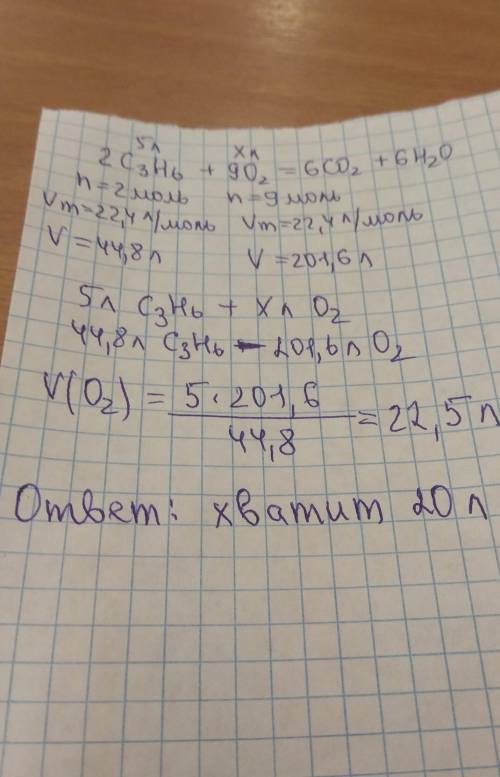 5л хл
2C₃H₆ + 9O₂ = 6CO₂ + 6H₂O
n = 2 моль n = 9 моль
Vm = 22,4 л/моль Vm = 22,4 л/моль
V = 44,8 л V = 201,6 л
5л C₃H₆ + X л O₂
44,8л C₃H₆ - 201,6 л O₂
V(O₂) = 5·201,6 / 44,8 = 22,5 л
Ответ: хватит 20 л